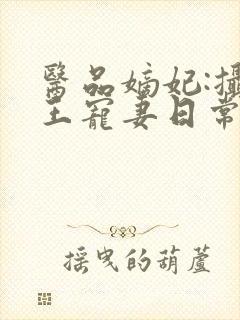 醫品嫡妃:攝
王寵妻日常
搖曳的葫蘆